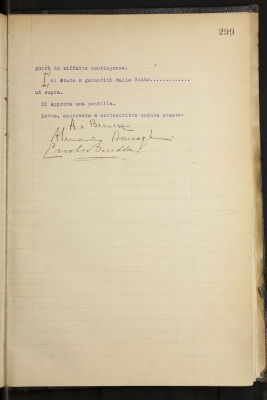 299
guirà in siffatte contingenze.
I/ di Stato o garantiti dallo Stato............
ut supra.
Si approva una postilla.
Letto, approvato e sottoscritto seduta stante.